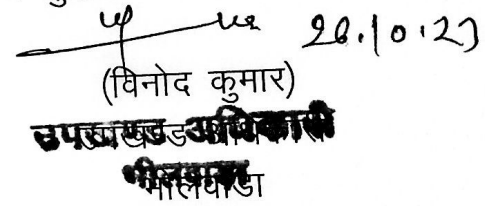 26.10.23
(विनोद कुमार)
उपखण्ड अधिकारी
भीलवाडा